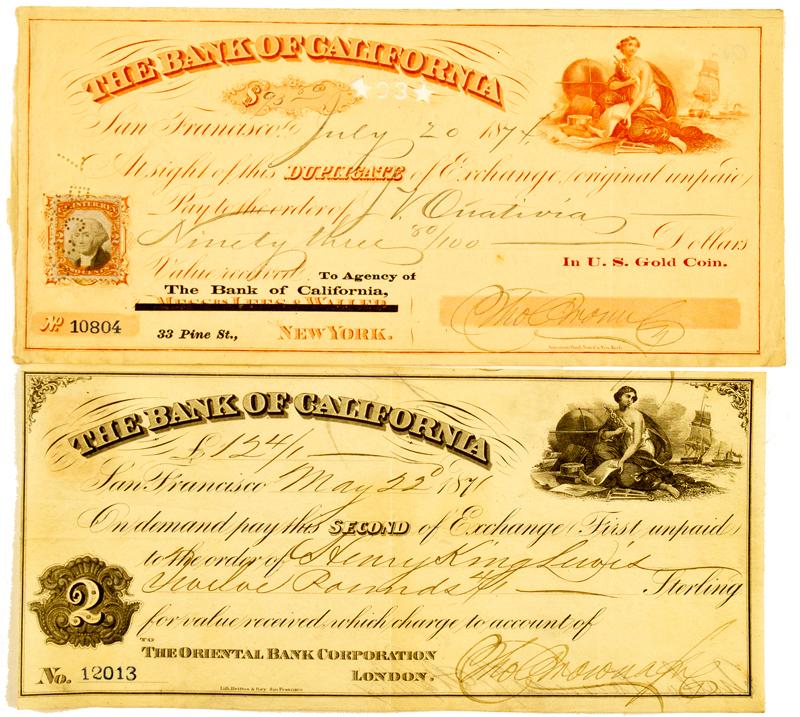 THE BANK OF CALIFORNIA
$93
★93★
San Francisco July 20 1874.
At sight of this DUPLICATE of Exchange (original unpaid)
Pay to the order of J V. Onativia
Ninety three 80/100 Dollars
Value received In U. S. Gold Coin.
To Agency of
The Bank of California,
MESSRS LEES & WALLER
No 10804 33 Pine St., NEW YORK.
Thos Brown
U.S. INTER. REV.
2 TWO CENTS 2
THE BANK OF CALIFORNIA
£12 4/1
San Francisco May 22d 1871
On demand pay this SECOND of Exchange (First unpaid)
to the order of Henry King Lewis
Twelve Pounds 4/1 Sterling
2
for value received, which charge to account of
TO
THE ORIENTAL BANK CORPORATION
LONDON.
No. 12013
Thos Brown
Lith. Britton & Rey San Francisco